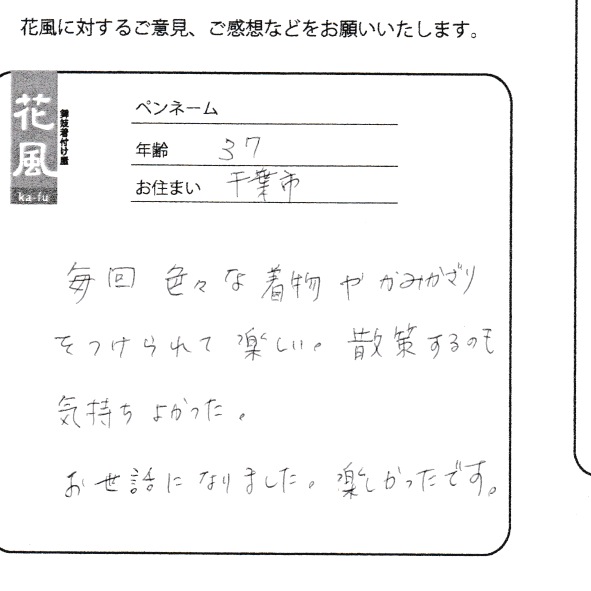 花風に対するご意見、ご感想などをお願いいたします。
花風
舞妓着付け屋
ka-fu
ペンネーム
年齢 37
お住まい 千葉市
毎回 色々な着物やかみかざり
をつけられて楽しい。散策するのも
気持ちよかった。
お世話になりました。楽しかったです。